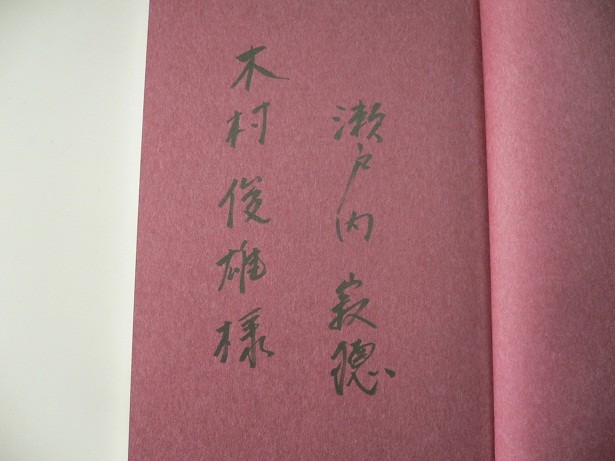 瀬戸内寂聴
木村俊雄様